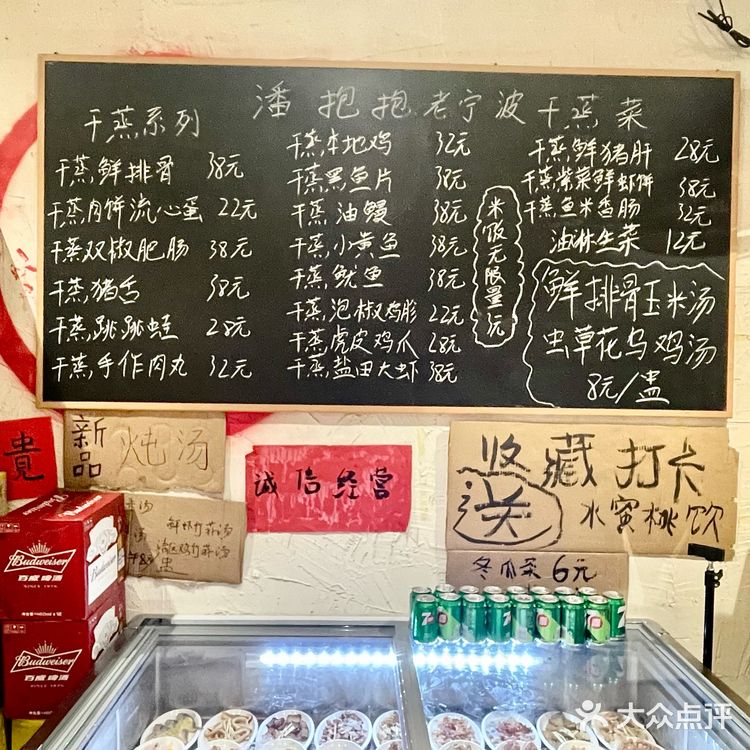 潘抱抱老宁波干蒸菜
干蒸系列
干蒸鲜排骨 38元
干蒸肉饼流心蛋 22元
干蒸双椒肥肠 38元
干蒸猪舌 38元
干蒸跳跳蛙 28元
干蒸手作肉丸 32元
干蒸本地鸡 32元
干蒸黑鱼片 38元
干蒸油鳗 38元
干蒸小黄鱼 38元
干蒸鱿鱼 38元
干蒸泡椒鸡胗 22元
干蒸虎皮鸡爪 28元
干蒸盐田大虾 38元
米饭无限量
干蒸鲜猪肝 28元
干蒸紫菜鲜虾饼 38元
干蒸鱼米香肠 32元
油淋生菜 12元
鲜排骨玉米汤
虫草花乌鸡汤
8元/盅
貴
新品
炖汤
诚信经营
收藏打卡
送
水蜜桃饮
冬瓜茶 6元
Budweiser
百威啤酒
Budweiser
百威啤酒
大众点评